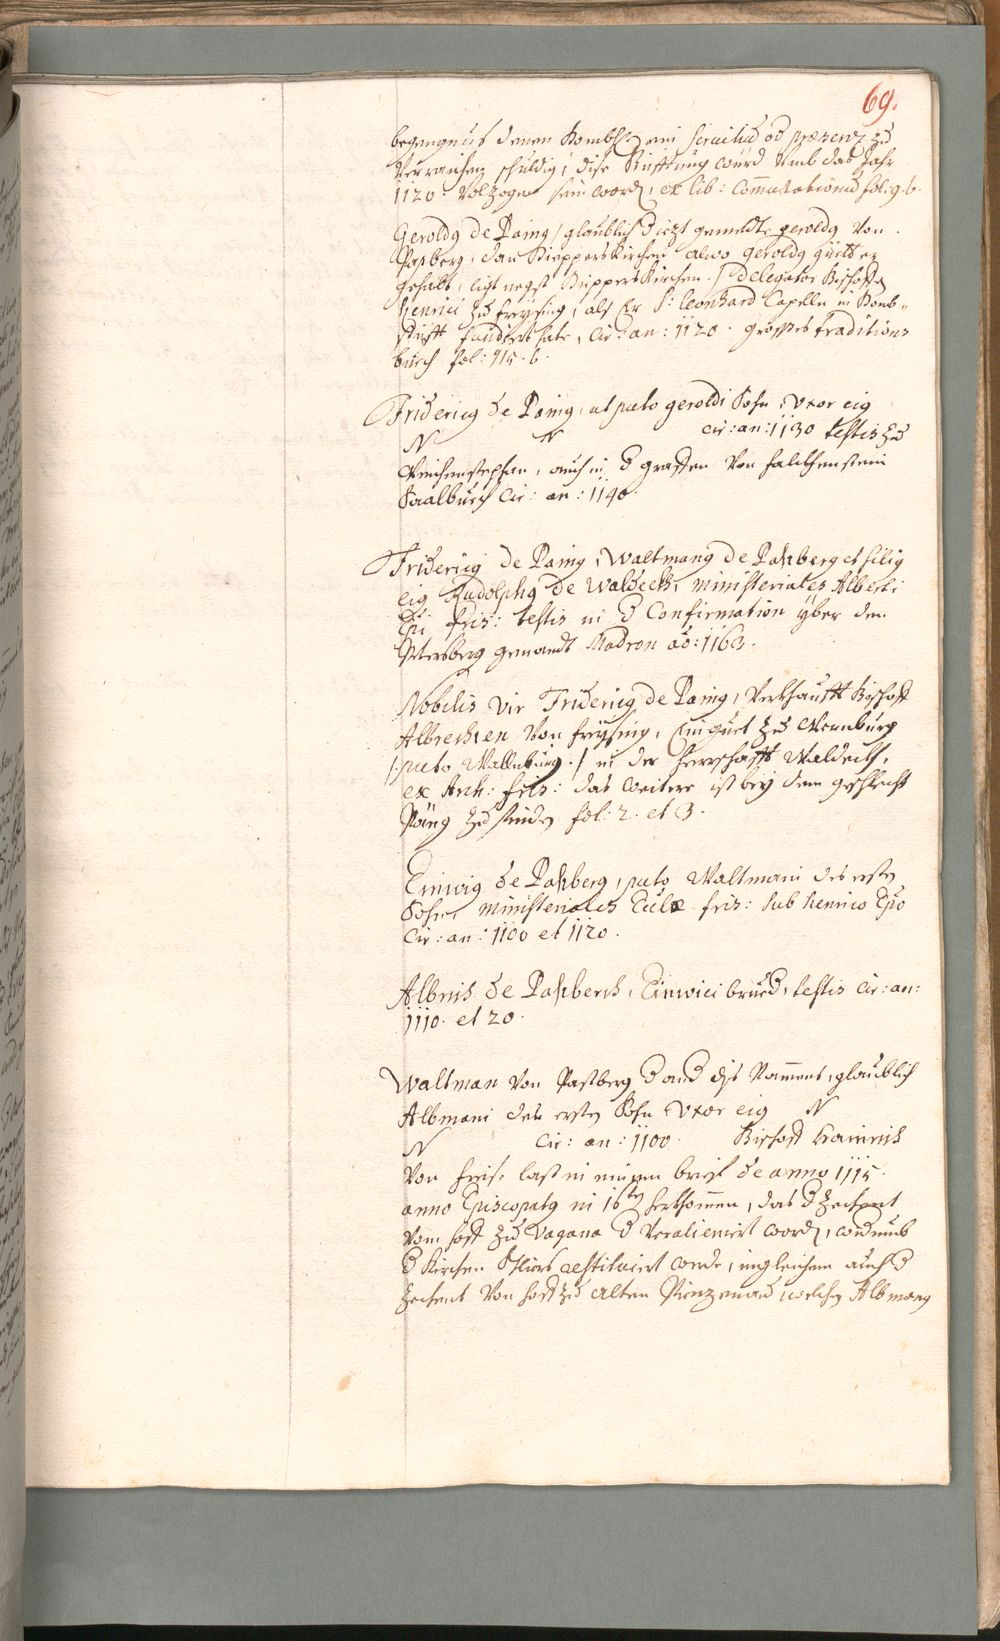 69.
begengnus denen Dombh: ein servitiu od præsenz zu
verraichen schuldig, dise Stifftung wurd umb das Jahr
1120 volzogen sein word, ex lib: Comutationu fol: 9. b.
Geroldg de Paing, glaublich d iezt gemeldte geroldg von
Pasberg, dan Kirchen alwo geroldg güetter
gehabt, ligt negst Kirchen. / delegator Bischoffs
Henrici zu Freysing, als Er S: Leonhard Capelln in Domb-
stifft fundirt hate, cir: an: 1120. grosses traditions
buech fol: 115. b.
Fridericg de Paing, ut puto geroldi Sohn, uxor eig
N N cir: an: 1130 testis zu
Weichenstephan, auch in d graffen von falckhenstein
Saalbuech cir: an: 1140.
Fridericg de Paing, Waltmang de Pasberg et filig
eig Rudolphg de Waldeckh, ministeriales Alberti
Epi fris: testis in d Confirmation yber den
Petersberg genandt Madron ao: 1163.
Nobilis vir Fridericg de Paing, verkhaufft Bischoff
Albrechten von freysing, ein guet zu Wernburg
/: puto Wallnburg :/ in der herrschafft Waldeckh,
ex Arch: fris: das weitere ist bey dem geschlecht
Päng zu finden fol: 2. et 3.
Einwig de Pasberg, puto Waltmani des ersten
Sohn, ministeriales Eccl fris: sub henrico Epo
cir: an: 1100 et 1120.
Albrich de Pasberch, Einwici brued, testis cir: an:
1110. et 20.
Waltman von Pasberg d and dis Namens, glaublich
Altmani des ersten Sohn, uxor eig N
N cir: an: 1100. Bischoff Hainrich
von fris: last in einem brief de anno 1115
anno Episcopatg in 16ten herkhommen, das d Zechent
vom hoff zu Vagana d veralieniert word, widerumb
d Kirchen restituiert werde, ingleichem auch d
Zechent von hoff zu alten Pienzenau welchen Altmang